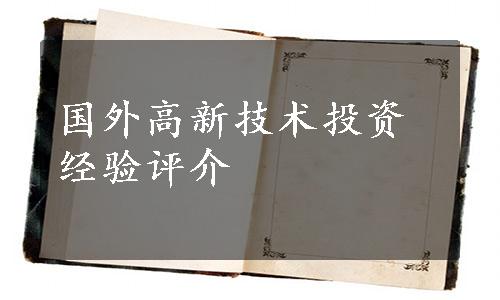 国外高新技术投资
经验评介